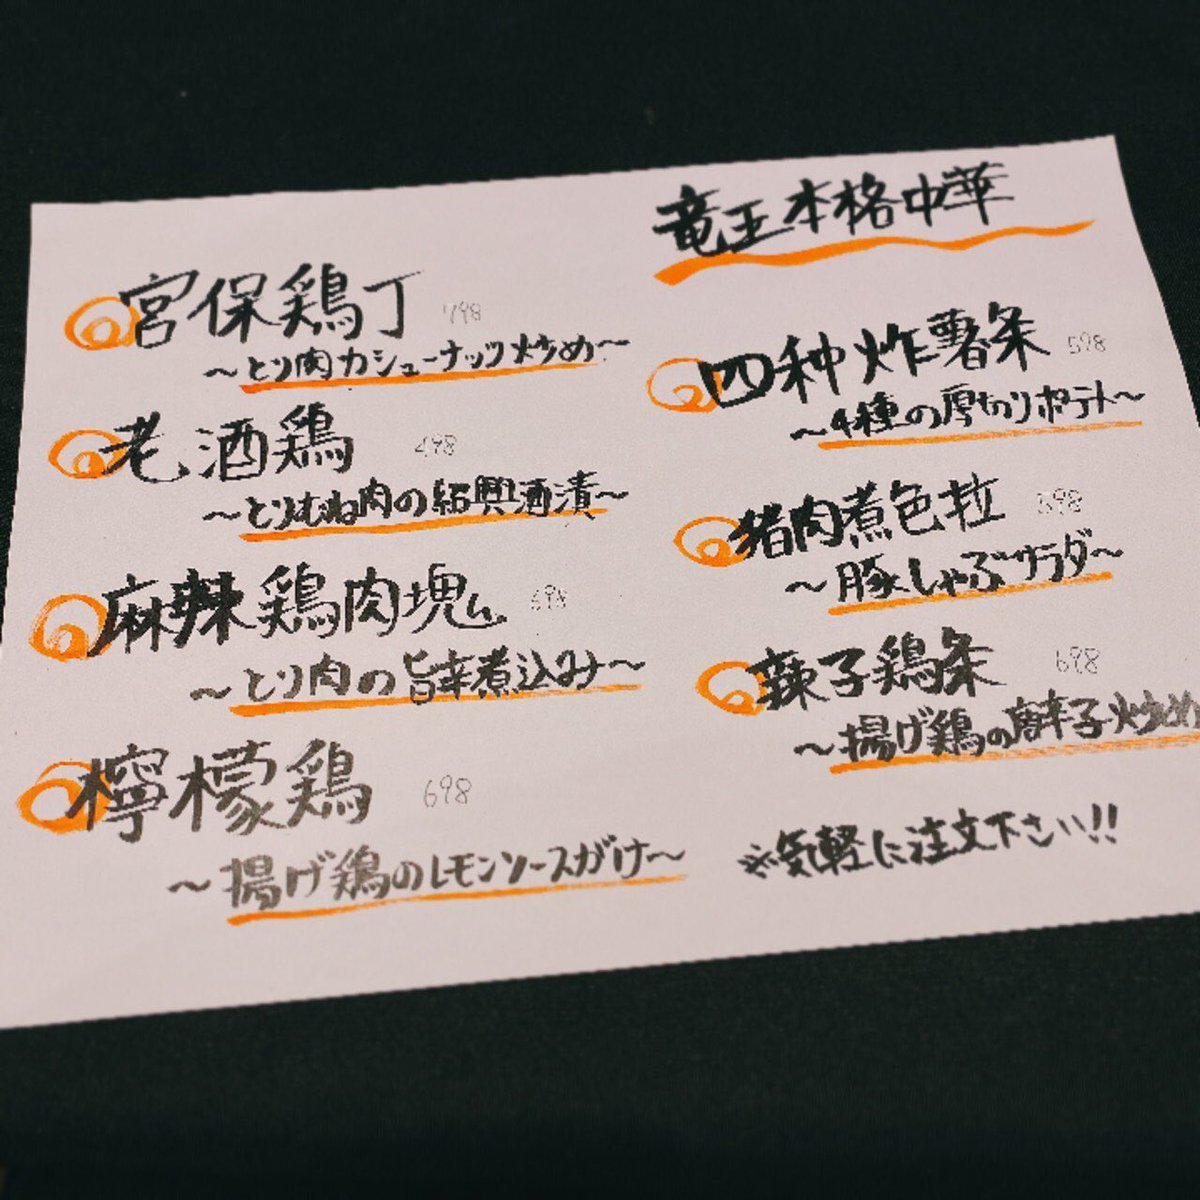 竜王本格中華
宮保鶏丁 798
～とり肉カシューナッツ炒め～
老酒鶏 498
～とりむね肉の紹興酒漬～
麻辣鶏肉塊 698
～とり肉の旨辛煮込み～
檸檬鶏 698
～揚げ鶏のレモンソースがけ～
四种炸薯条 598
～4種の厚切りポテト～
猪肉煮色拉 598
～豚しゃぶサラダ～
辣子鶏条 698
～揚げ鶏の唐辛子炒め
※気軽に注文下さい!!